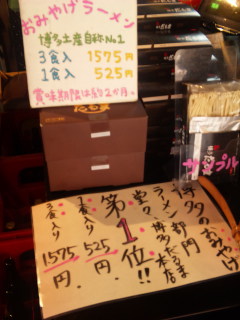 おみやげラーメン
博多土産自称No.1
3食入 1575円
1食入 525円
賞味期限は約2か月。
サンプル
博多のおみやげ
ラーメン部門
博多だるま本店
堂々
第1位!!
1食入り 525円
3食入り 1575円